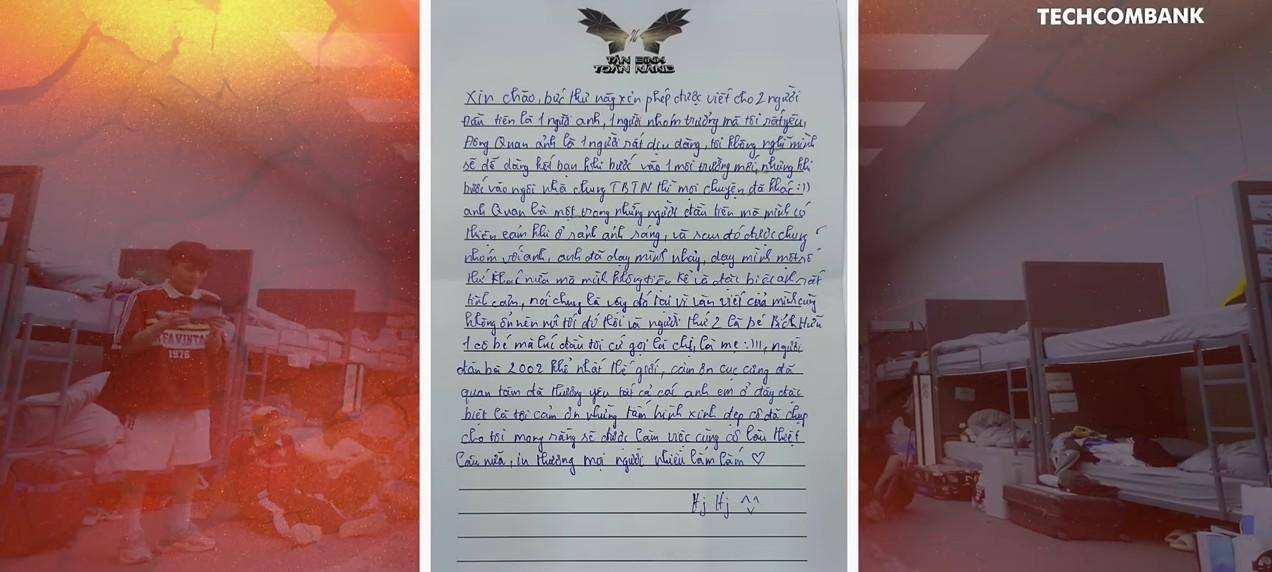 TECHCOMBANK
TÂN BINH
TOÀN NĂNG
Xin chào, bức thư này xin phép được viết cho 2 người
Đầu tiên là 1 người anh, 1 người nhóm trưởng mà tôi rất yêu,
Đông Quan ảnh là 1 người rất dịu dàng, tôi không nghĩ mình
sẽ dễ dàng kết bạn khi bước vào 1 môi trường mới, nhưng khi
bước vào ngôi nhà chung TBTN thì mọi chuyện đã khác :))
anh Quan là một trong những người đầu tiên mà mình có
thiện cảm khi ở sảnh ánh sáng, và sau đó được chung
nhóm với anh, anh đã dạy mình nhảy, dạy mình một số
thứ khác nữa mà mình không tiện kể và đặc biệt anh rất
tình cảm, nói chung là vậy đó tại vì văn viết của mình cũng
không ổn nên nói tới đó thôi và người thứ 2 là bé Bích Hiền
1 cô bé mà lúc đầu tôi cứ gọi là chị, là mẹ :))), người
đàn bà 2002 khổ nhất thế giới, cảm ơn cục cưng đã
quan tâm đã thương yêu tất cả các anh em ở đây đặc
biệt là tôi cảm ơn những tấm hình xinh đẹp cô đã chụp
cho tôi mong rằng sẽ được làm việc cùng cô lâu thiệt
lâu nữa, iu thương mọi người nhiều lắm lắm ♡
Hj Hj ^^
EAVINTA
1976